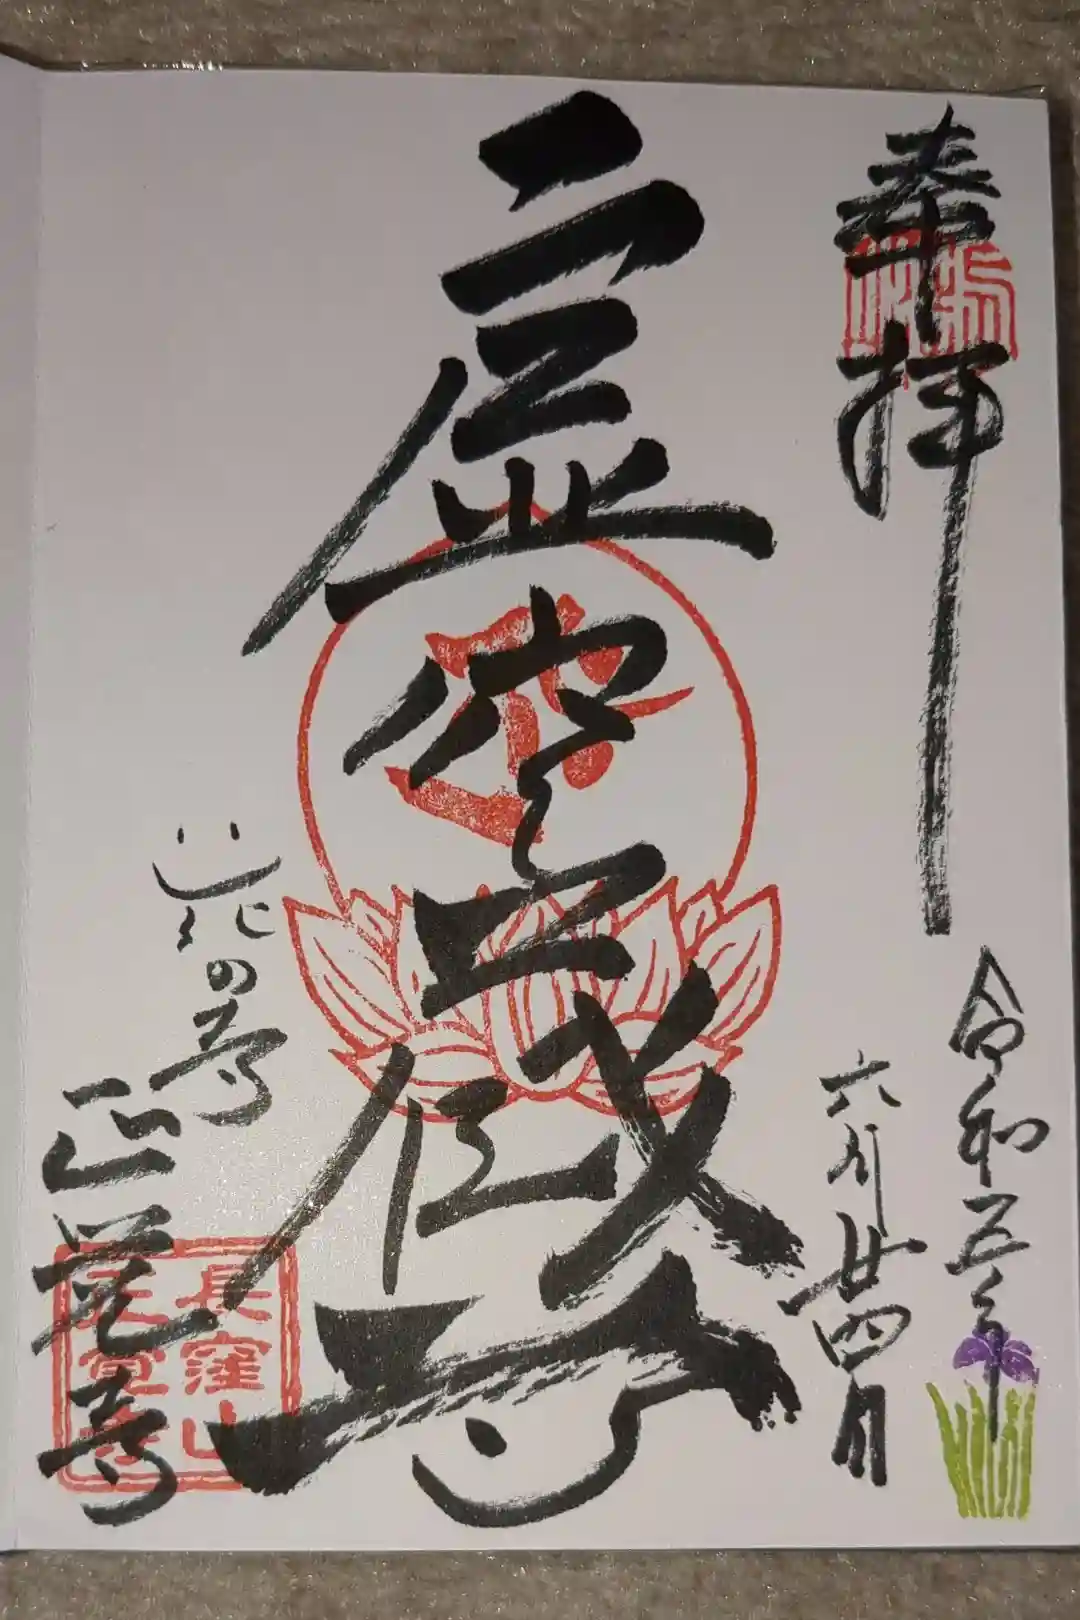 奉拝
令和五年
六月廿四日
虚空蔵尊
花の寺
正覚寺
長窪山
正覚寺